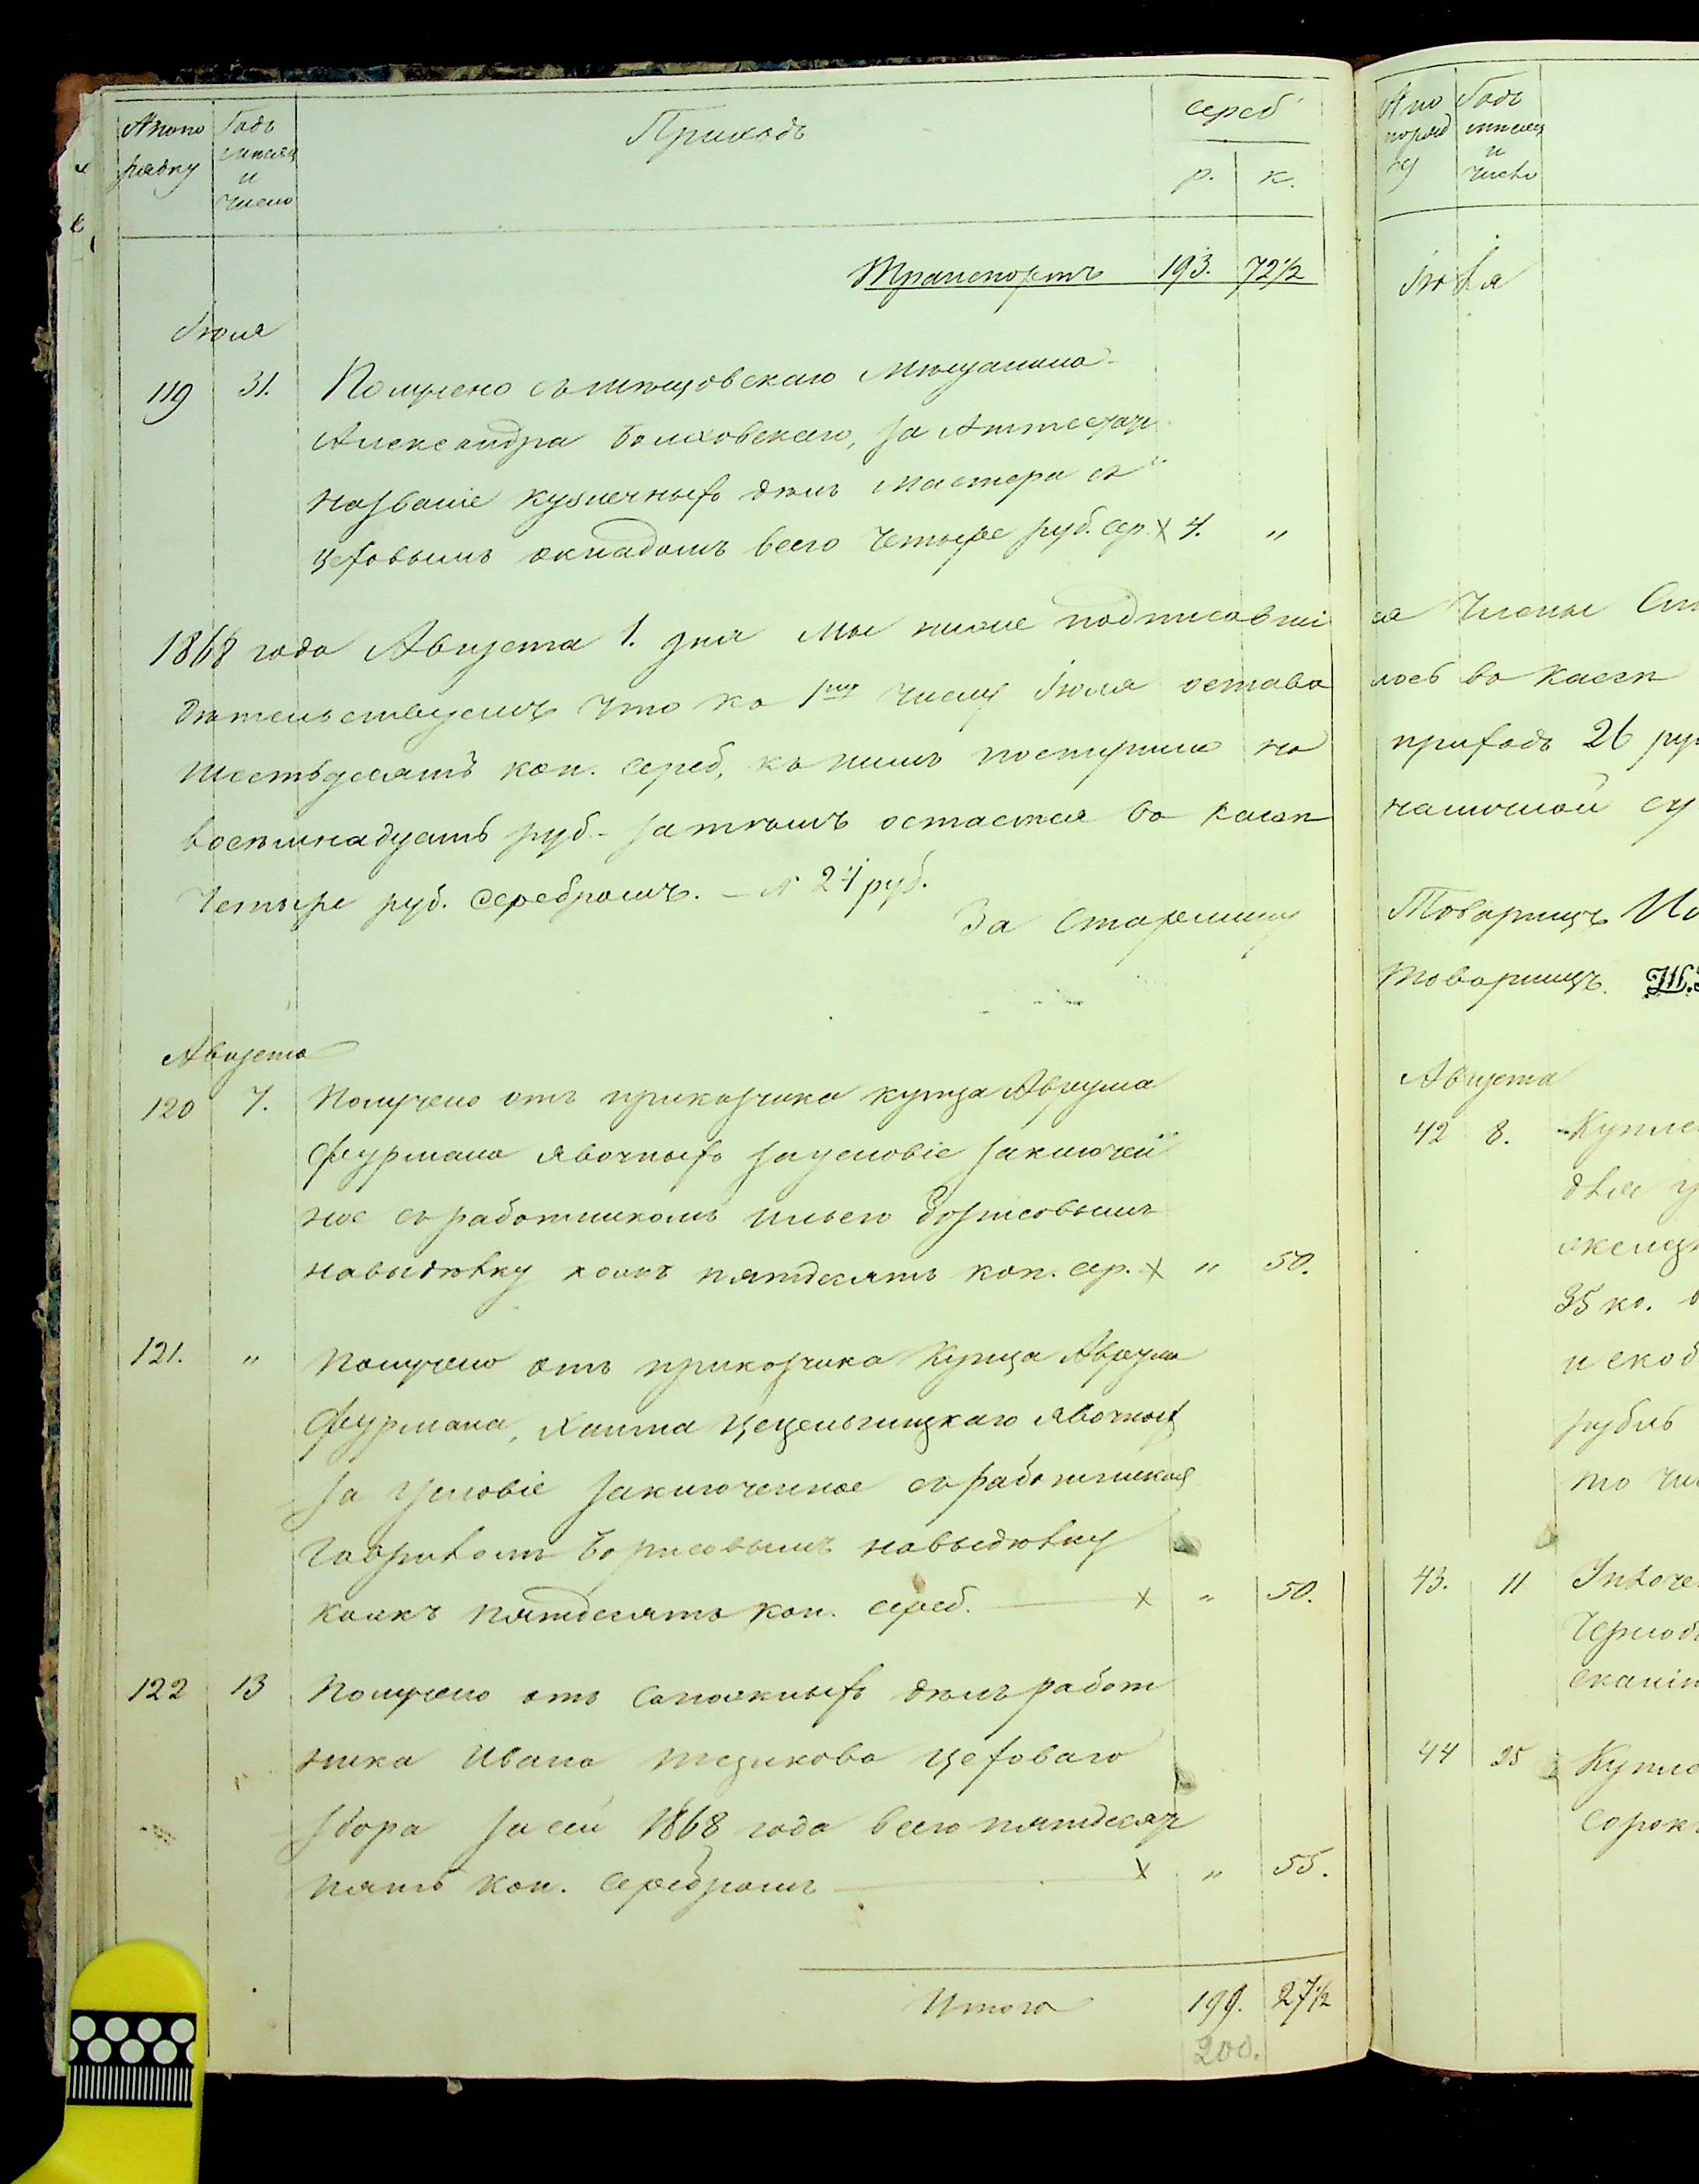 № по по
рядку
Годъ
мѣсяцъ
и
число
Приходъ
сереб
р.
к.
Транспортъ 193. 72 1/2
Іюля
119 31. Получено съ мѣщанина
Александра за Аттестатъ
названіе кузнечныхъ дѣлъ мастера съ
цеховымъ окладомъ всего четыре руб. сер. х 4. "
1868 года Августа 1. дня Мы ниже подписавші
дѣтельствуемъ что ко 1му числу Іюля остава
шестьдесятъ коп. сереб, къ нимъ поступило на
восемнадцать руб. - затѣмъ остается въ кассѣ
четыре руб. серебромъ. — 24 руб.
За Старшину
Августа
120 7. Получено отъ прикащика купца Аврума
Фурмана явочныхъ за условіе заключен
ное съ работникомъ Борисовымъ
на выдѣлку кожъ пятдесятъ коп. сер. х " 50.
121. " Получено отъ прикащика Купца Аврума
Фурмана, Хаима явочныхъ
за условіе заключенное съ работникомъ
Гавриломъ Борисовымъ на выдѣлку
кожъ пятдесятъ коп. сереб. — х " 50.
122 13 Получено отъ Сапожныхъ дѣлъ работ
ника Ивана цеховаго
збора за сей 1868 года всего пятдесятъ
пять коп. серебромъ — х " 55.
Итого 199. 27 1/2
200.
№ по
поряд
ку
Годъ
мѣсяцъ
и
число
Іюля
ся Члены
лось въ кассѣ
приходъ 26 ру
наличной су
Товарищъ
Товарищъ. Ш.
Августа
42 8. Купле
для
35 ко.
и скоб
рубль
то чи
43. 11
44 25 Купле
сорокъ